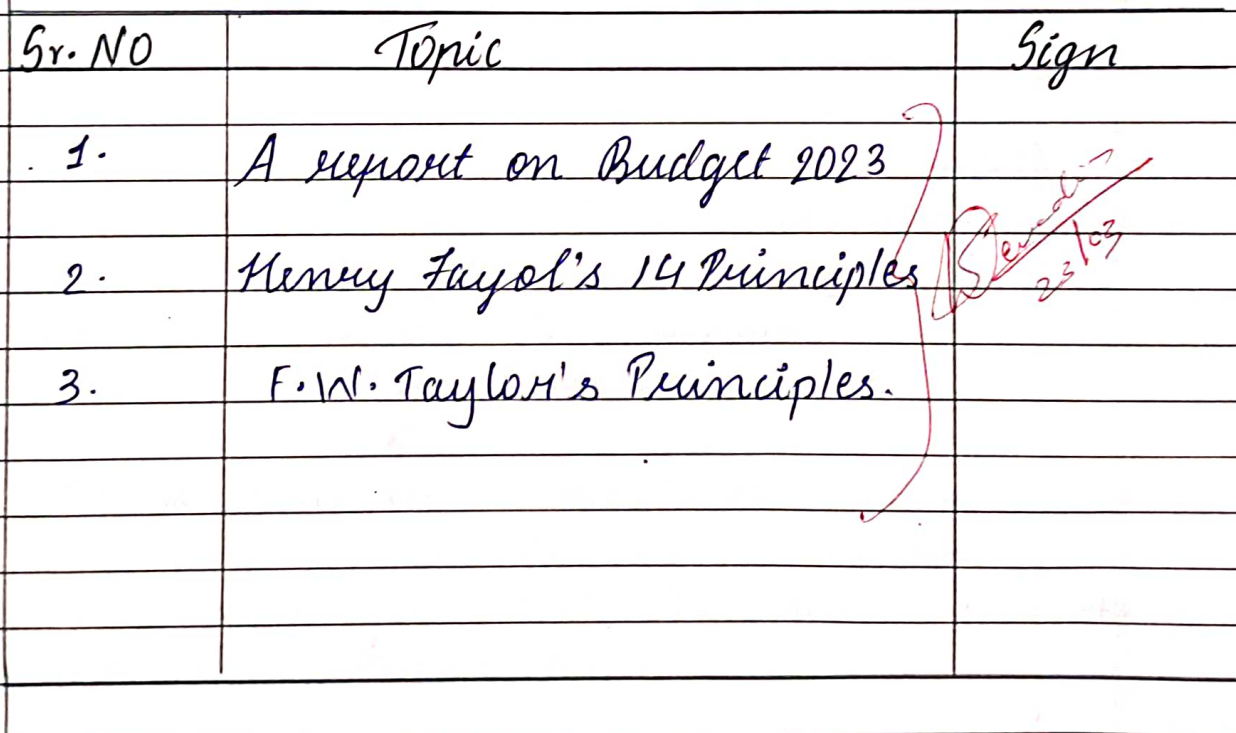 Sr. NO Topic Sign
1. A report on Budget 2023
2. Henry Fayol's 14 Principles
3. F.W. Taylor's Principles.
23/03